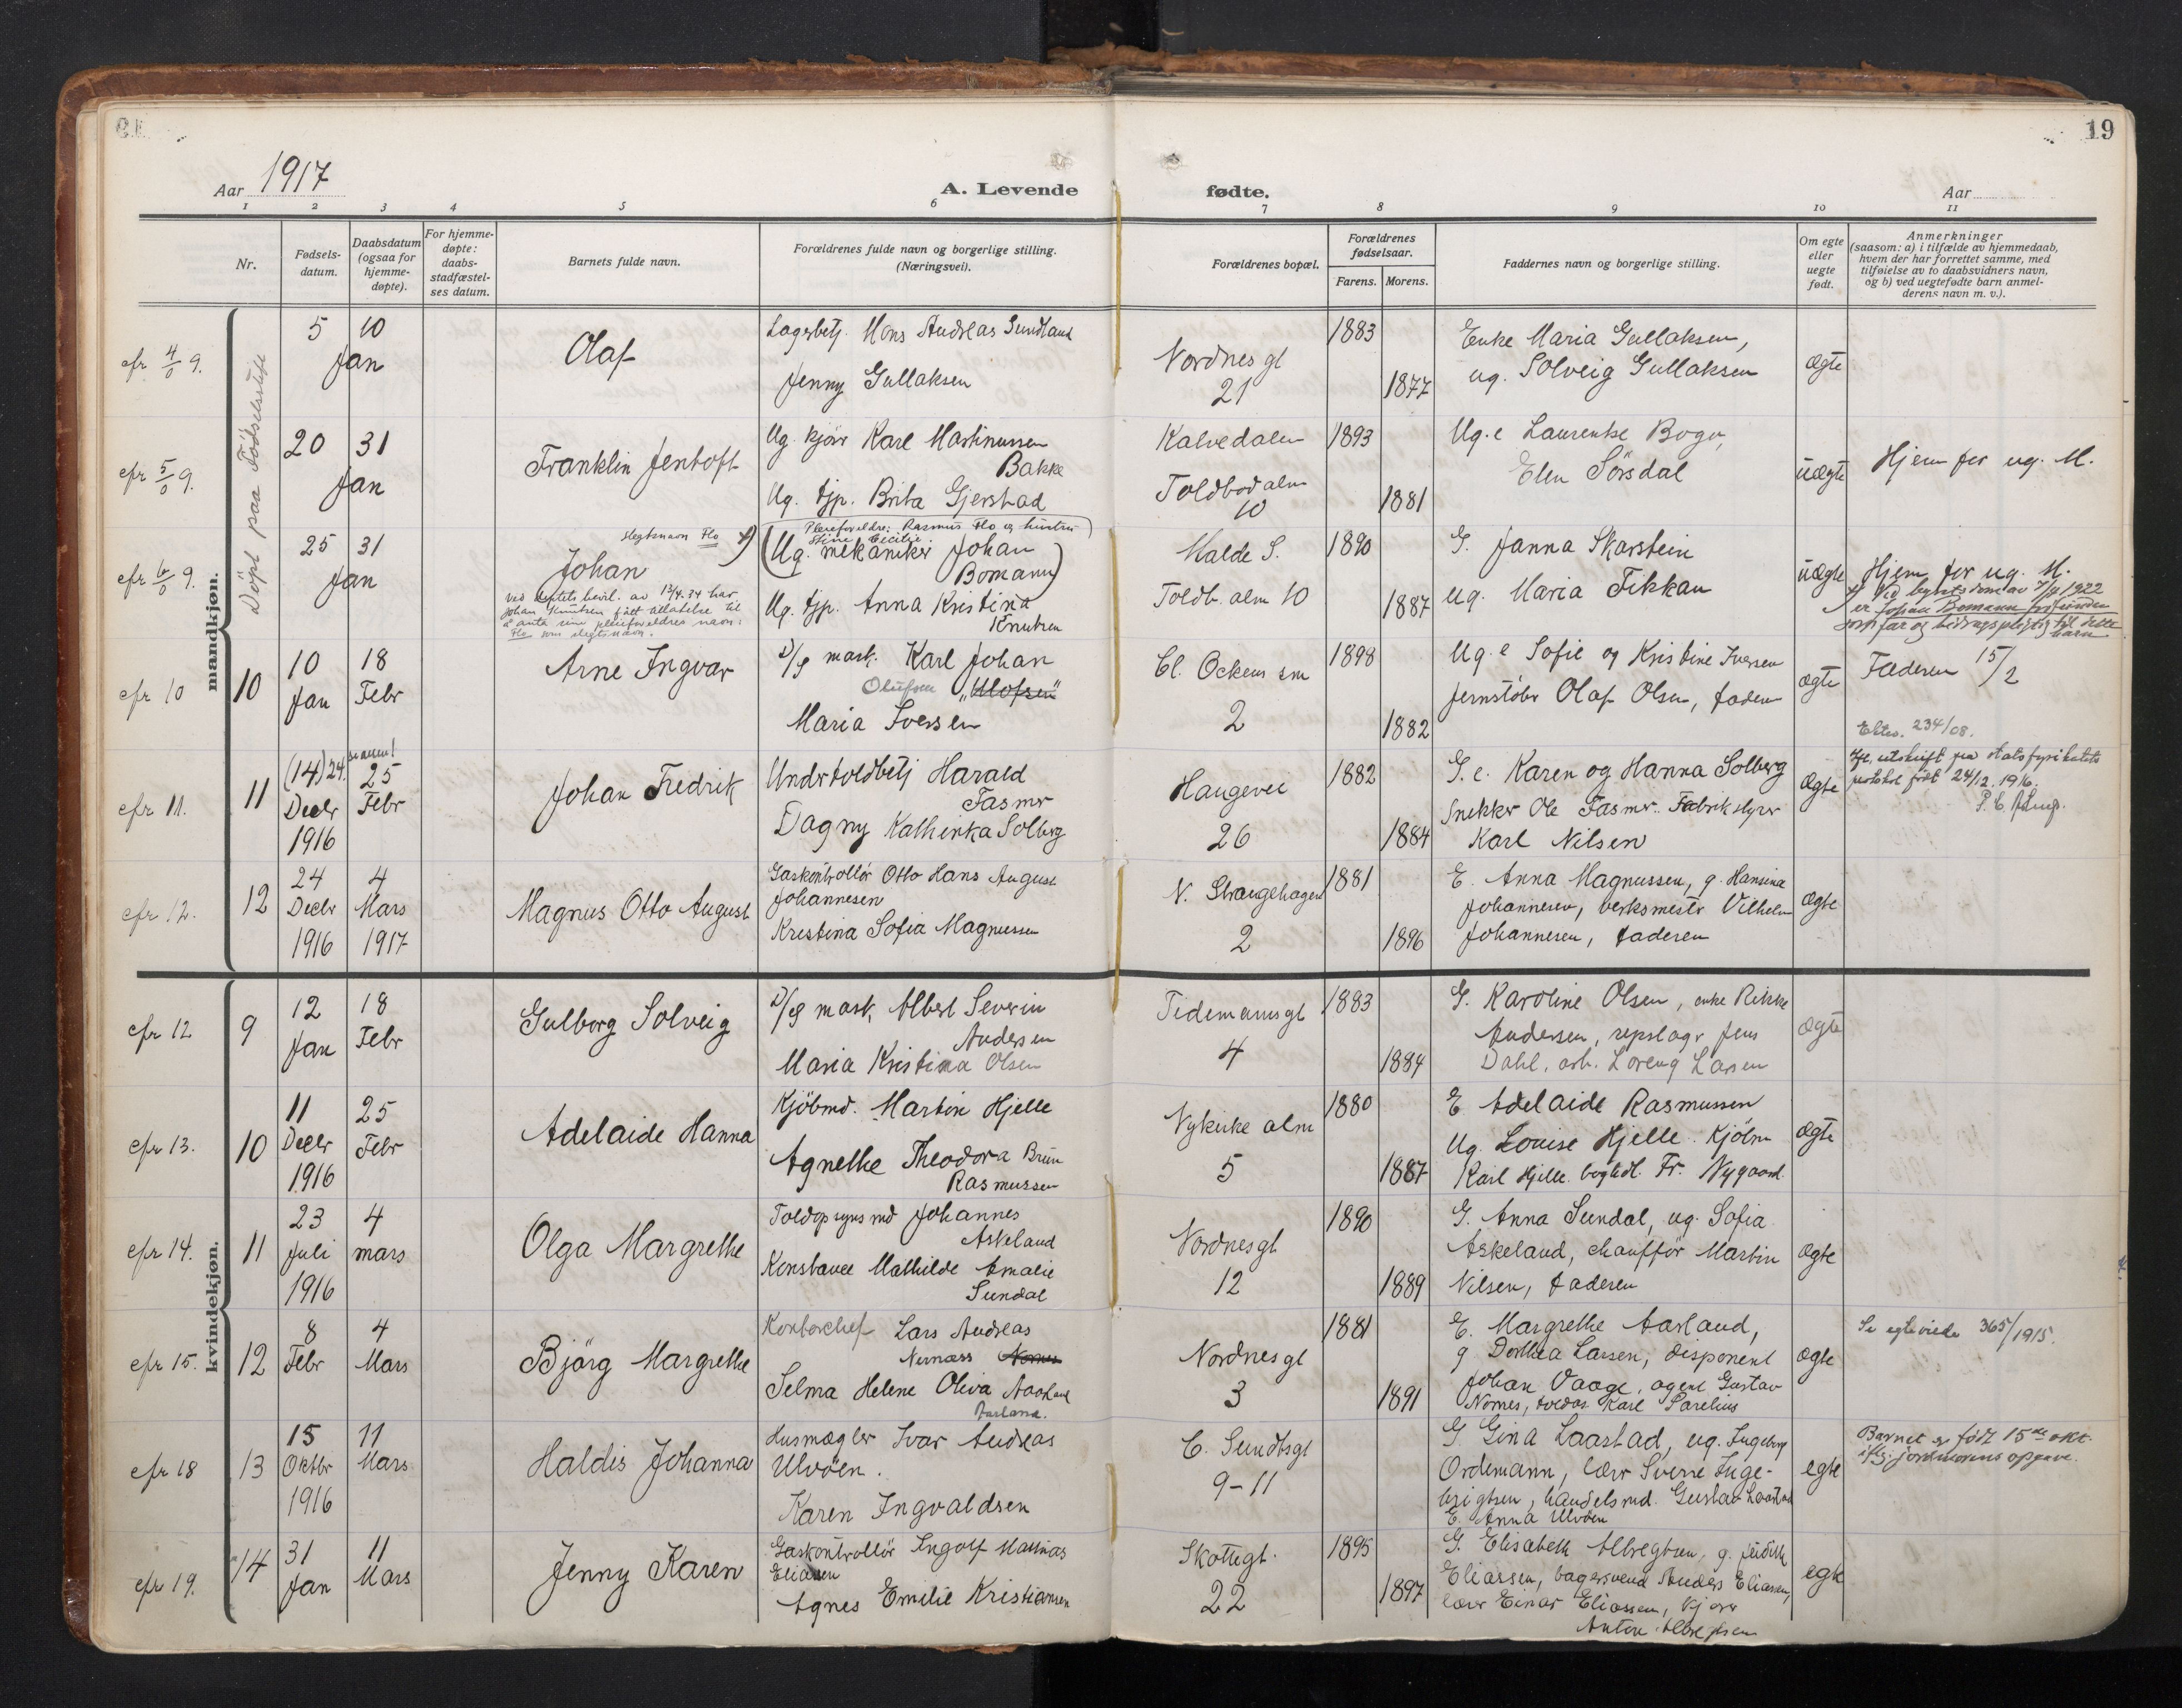 19
Aar 1917
A. Levende
fødte.
Aar
1 2 3 4 5 6 7 8 9 10 11
Nr.
Fødsels-
datum.
Daabsdatum
(ogsaa for
hjemme-
døpte).
For hjemme-
døpte:
daabs-
stadfæstel-
ses datum.
Barnets fulde navn.
Forældrenes fulde navn og borgerlige stilling.
(Næringsvei).
Forældrenes bopæl.
Forældrenes
fødselsaar.
Farens. Morens.
Faddernes navn og borgerlige stilling.
Om egte
eller
uegte
født.
Anmerkninger
(saasom: a) i tilfælde av hjemmedaab,
hvem der har forrettet samme, med
tilføielse av to daabsvidners navn,
og b) ved uegtefødte barn anmel-
derens navn m. v.).
mandkjøn.
Döpt paa Födselsstift
cfr 4/0 9.
5 10
Jan
Olaf
Lagerbetj. Mons Andreas Sundland
Jenny Gullaksen
Nordnesgt
21
1883
1877
Enke Maria Gullaksen,
ug. Solveig Gullaksen
Ægte
cfr 5/0 9.
20 31
Jan
Franklin Jentoft
Ug. kjörer Karl Martinussen
Bakke
Ug. tjp. Brita Gjerstad
Kalvedalen
Toldbodalm
10
1893
1881
Ug. e Laurentse Bogo,
Elen Sörsdal
uægte
Hjem for ug. M.
cfr 6/0 9.
25 31
Jan
slegtsnavn Flo
Johan
ved bevil. av 13/4.34 har
Johan Knutsen fått tillatelse til
å anta sine pleieforeldres navn:
Flo som slegtsnavn.
Pleieforeldre: Rasmus Flo og hustru
Stine Cecilie
(Ug. mekaniker Johan
Bomann)
Ug. tjp. Anna Kristina
Knutsen
Malde S.
Toldb. alm 10
1890
1887
G. Janna Skarstein
ug. Maria Tikkau
uægte
Hjem for ug. M.
Ved bygetsdom av 1922
er Johan Bomann
som far og bidragspligtig til dette
barn
cfr 10
10
10 18
Jan Febr
Arne Ingvar
D/S mask. Karl Johan
Olufsen "Ulofsen"
Maria Iversen
Cl. Ockens sm
2
1898
1882
Ug. e Sofie og Kristine Iversen
Jernstöber Olaf Olsen, faderen
ægte
Faderen 15/2
Ektev. 234/08.
cfr 11.
11
(14) 24. 25
Decbr Febr
1916
Johan Fredrik
Undertoldbetj Harald
Fasmer
Dagny Kathinka Solberg
Haugevei
26
1882
1884
G. e. Karen og Hanna Solberg
Snekker Ole Fasmer. Fabrikstyrer
Karl Nilsen
Ægte
utskrift fra statsfysikatets
protokol født 24/12.1916.
cfr 12.
12
24 4
Decbr Mars
1916 1917
Magnus Otto August
Gaskontrollör Otto Hans August
Johannesen
Kristina Sofia Magnussen
N. Strangehagen
2
1881
1896
E. Anna Magnussen, g. Hansina
Johannesen, verksmestr Vilhelm
Johannesen, faderen
Ægte
kvindekjøn.
cfr 12
9
12 18
Jan Febr
Gulborg Solveig
D/S mask. Albert Severin
Andersen
Maria Kristina Olsen
Tidemannsgt
4
1883
1884
G. Karoline Olsen, enke Rikke
Andersen, repslagr Jens
Dahl, arb. Loreng Larsen
Ægte
cfr 13.
10
11 25
Decbr Febr
1916
Adelaide Hanna
Kjöbmd. Martin Hjelle
Agnethe Theodora Brun
Rasmussen
Nykirke alm
5
1880
1887
E Adelaide Rasmussen
Ug. Louise Hjelle. Kjöbm
Karl Hjelle. Fr. Nygaard.
ægte
cfr 14.
11
23 4
Juli mars
1916
Olga Margrethe
Toldopsynsmd Johannes
Askeland
Konstance Mathilde Amalie
Sundal
Nordnesgt
12
1890
1889
G. Anna Sundal, ug. Sofia
Askeland, chaufför Martin
Nilsen, faderen
Ægte
cfr 15.
12
8 4
Febr Mars
Björg Margrethe
Kontorchef Lars Andreas
Nernæss
Selma Helene Oliva Aarland
Aarland.
Nordnesgt
3
1881
1891
E. Margrethe Aarland,
g Dorthea Larsen, disponent
Johan Vaage, agent Gustav
Nornes, toldas. Karl Parelius
Ægte
Se egteviede 365/1915.
cfr 18
13
15 11
Oktbr Mars
1916
Haldis Johanna
Husmægler Ivar Andreas
Ulvöen.
Karen Ingvaldsen
C. Sundtsgt
9-11
G. Gina Laastad, ug. Ingeborg
Ordemann, lærer Sverre Inge-
brigtsen, handelsmd. Gustav Laastad
E. Anna Ulvöen
egte
Barnet er født 15de okt.
iflg. jordmorens opgave.
cfr 19.
14
31 11
Jan Mars
Jenny Karen
Gaskontrollör Ingolf Mathias
Eliassen
Agnes Emilie Kristiansen
Skottegt.
22
1895
1897
G. Elisabeth Albregtsen, g. Judith
Eliassen, bagersvend Anders Eliassen,
lærer Einar Eliassen, kjører
Anton Albregtsen
egte